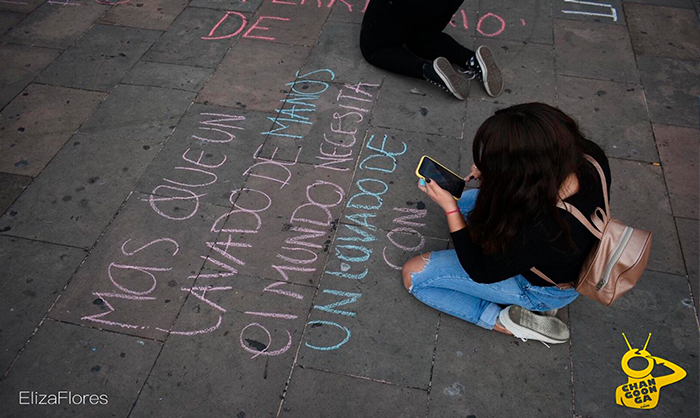 DE
MAS QUE UN
LAVADO DE MANOS
el MUNDO NECESITA
UN LAVADO DE
CON
ElizaFlores
CHAN
GOON
GA
.com